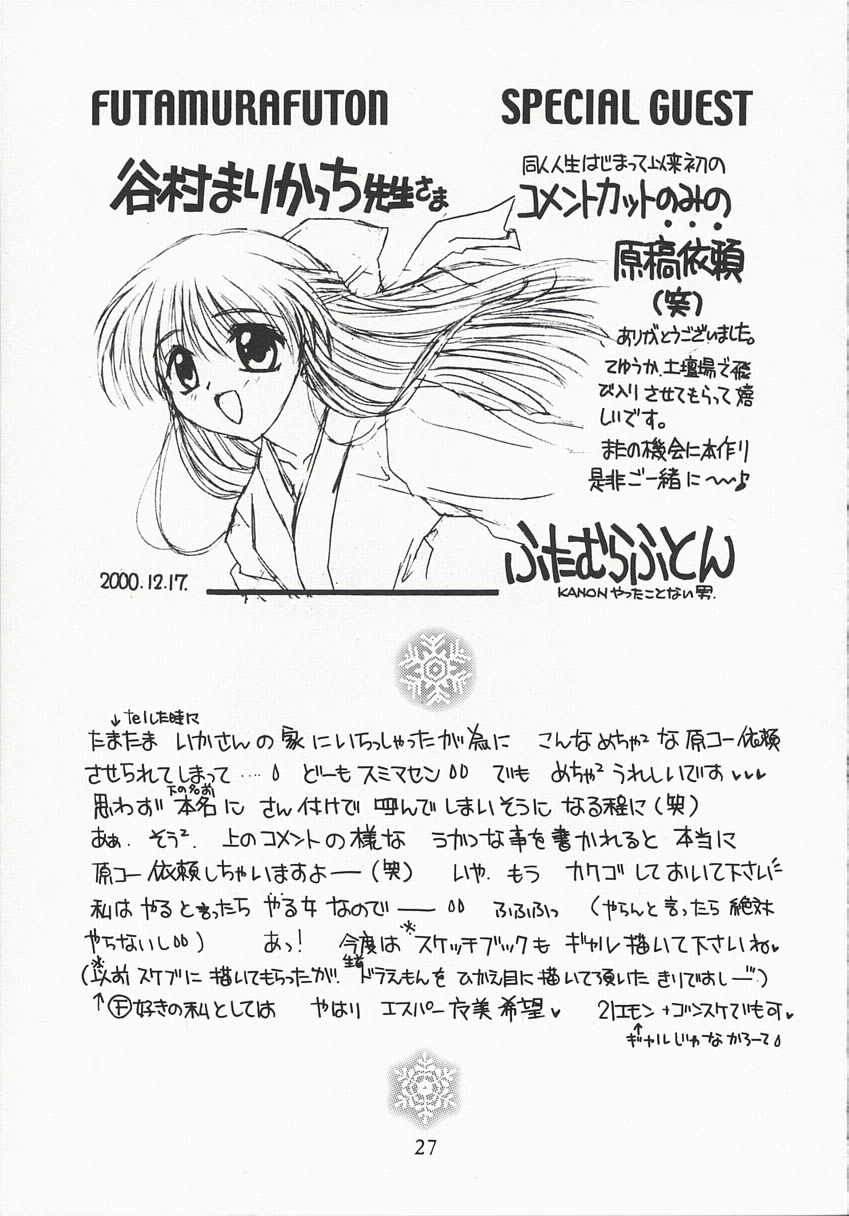 FUTAMURAFUTON
SPECIAL GUEST
谷村まりかっち先生さま
同人人生はじまって以来初の
コメントカットのみの
原稿依頼
(笑)
ありがとうございました。
てゆうか、土壇場で飛
び入りさせてもらって嬉
しいです。
またの機会に本作り
是非ご一緒に〜〜♪
ふたむらふとん
KANONやったことない男.
2000.12.17.
↓telした時に
たまたま いかさんの家にいらっしゃったが為に こんなめちゃ²な原コー依頼
させられてしまって…。 どーもスミマセン でも めちゃ²うれしいです♥♥♥
下の名前
思わず本名に さん付けで 呼んでしまいそうに なる程に(笑)
あぁ. そう². 上のコメントの様な うかつな事を書かれると 本当に
原コー依頼しちゃいますよ──(笑) いや. もう カクゴしておいて下さい
私は やると言ったら やる女 なので── ふふふっ (やらんと言ったら絶対
やらないし) あっ! 今度は※スケッチブックも ギャル描いて下さいね♥
(※以前スケブに描いてもらったが. 生首ドラえもんを ひかえ目に描いて頂いた きりですし──)
↑Ⓕ好きの私としては やはり エスパー 魔美希望♥ 21エモン+ゴンスケでも可♥
↑ギャルじゃなかろーて
27